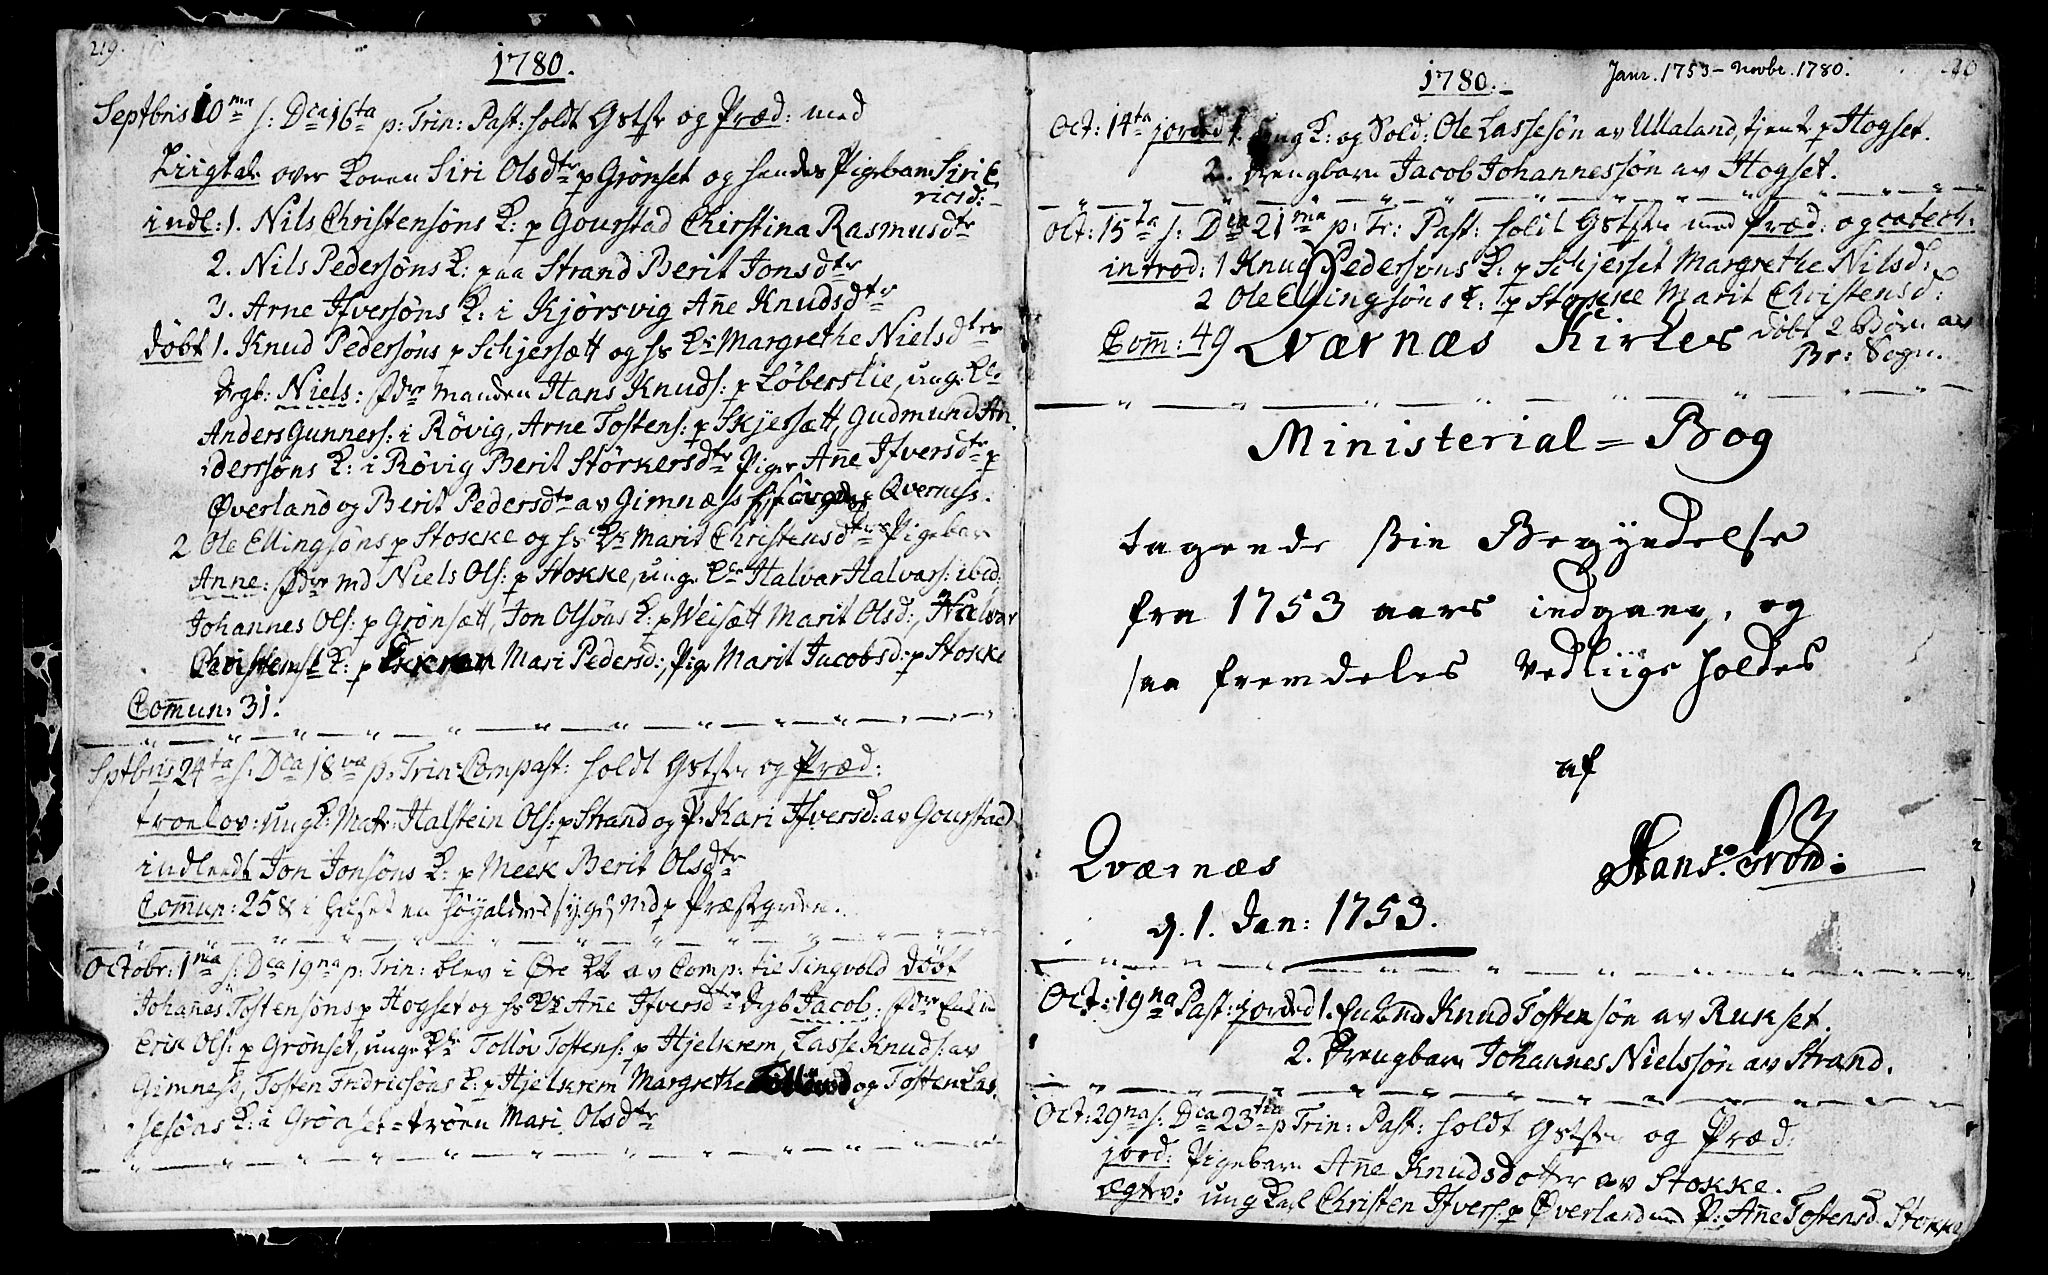 219.
1780.
Septbris 10ma s: Dca 16ta p: Trin: Past: holdt Gstste og Præd: med
Liigtale over Konen Siri Olsdtr p Gjönset og hendes Pigebarn Siri E
ricsd:
indl: 1. Nils Christensöns K: p Gourstad Chirstina Rasmusdtr
2. Nils Pedersöns K: paa Strand Berit Jonsdtr
3. Arne Ifversöns K: i Kjörsvig Añe Knudsdtr
döbt 1. Knud Pedersöns p Schjersætt og hs Ks Margrethe Nielsdtrs
Drgb: Niels: fddr Manden Hans Knuds: p Löberslie, ung: Kle
Anders Gunners: i Rövig, Arne Tostens: p Skjersætt, Gudmund An.
derssöns K: i Rövig Berit Störkersdtr Piger Añe Ifversdtr p
Överland og Berit Pedersdtr av Gimnæss Qverness.
2 Ole Ellingsöns p Stokke og hs Ks Marit Christensdtrs Pigebar
Anne: fddr Md Niels Ols: p Stokke, ung. Kle Halvar Halvars: ibid:
Johannes Ols: p Grönsætt, Jon Olsöns K: p Weisætt Marit Olsd:, Halvar
Christens K: p Ekkren Mari Pedersd:, Pig: Marit Jacobsd: p Stokke
Com̃un: 31.
Sptbris 24ta s: Dca 18va p: Trin: Compast: holdt Gstste og Præd:
troelov: ung K: Matr: Halstein Ols: p Strand og P: Kari Ifversd: av Gourstad
indleedt Jon Jonsöns K: p Meek Berit Olsdtr
Com̃un: 25 & i huset en höyaldrende syg Md p Præstgrden.
Octobr: 1ma s: Dca 19na p: Trin: blev i Öre Kk av Comp: til Tingvold döbt
Johañes Tostensöns p Hogset og hs Ks Añe Ifversdtrs Drgb Jacob: fddr
Erik Ols: p Grönset, unge Kle Tollöv Tostens: p Hjelkrem, Lasse Knuds: av
Gimness, Tosten Fridricsöns K: p Hjelkrem Margrethe Tollövsd og Tosten Las.
sesöns K: i Grönset-tröen Mari Olsdtr
1780.
Janr. 1753 - Novbr. 1780.
Oct: 14ta jorded 1. Ung K: og Sold: Ole Lassesön av Ullaland, tjent p Hogset.
2. Drengbarn Jacob Johannessön av Hogset.
Oct: 15ta s: Dca 21ma p: Tr: Past: holdt Gstste med Præd: og catech:
introd: 1 Knud Pedersöns K: p Schjerset Margrethe Nilsd:
2 Ole Ellingsöns K: p Stokke Marit Christensd:
Com̃: 49 döbt 2 Börn av
Qværnæs Kirkes
Br: Sogn.
Ministerial=Bog
tagende sin Begyndelse
fra 1753 aars indgang, og
saa fremdeles Vedliige holdes
af
Qværnæs
Hans
d. 1. Jan: 1753.
Oct: 19na Past: jorded 1. Knud Tostensön av Rukset.
2. Drengbarn Johannes Nielssön av Strand.
Oct: 29na s: Dca 23tia p Trin: Past: holdt Gstste og Præd:
jord: Pigebarn Añe Knudsdotter av Stokke.
ægtv: ung Karl Christen Ifvers: p Överland med P: Añe Tostensd: Stokke